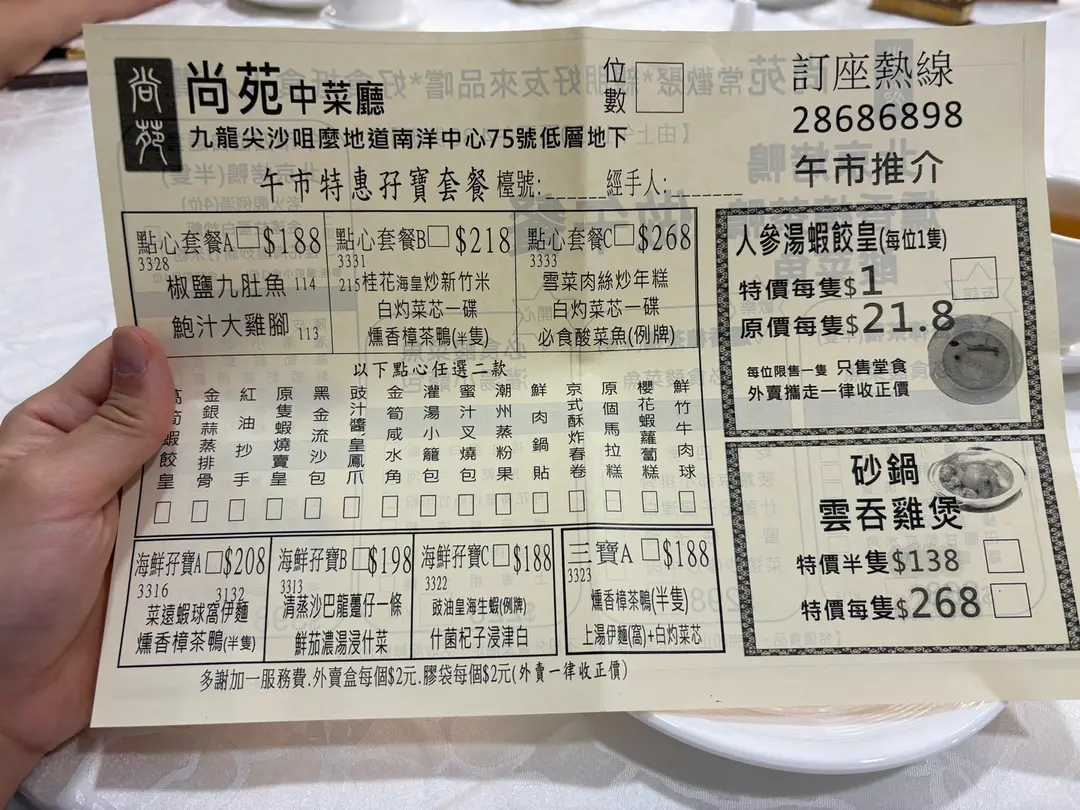 尚苑
尚苑中菜廳
九龍尖沙咀麼地道南洋中心75號低層地下
位數
訂座熱線
28686898
午市特惠孖寶套餐 檯號:______ 經手人:______
午市推介
點心套餐A $188
3328
椒鹽九肚魚 114
鮑汁大雞腳 113
點心套餐B $218
3331
215 桂花海皇炒新竹米
白灼菜芯一碟
燻香樟茶鴨(半隻)
點心套餐C $268
3333
雪菜肉絲炒年糕
白灼菜芯一碟
必食酸菜魚(例牌)
以下點心任選二款
高筍蝦餃皇
金銀蒜蒸排骨
紅油抄手
原隻蝦燒賣皇
黑金流沙包
豉汁醬皇鳳爪
金筍咸水角
灌湯小籠包
蜜汁叉燒包
潮州蒸粉果
鮮肉鍋貼
京式酥炸春卷
原個馬拉糕
櫻花蝦蘿蔔糕
鮮竹牛肉球
海鮮孖寶A $208
3316 3132
菜遠蝦球窩伊麵
燻香樟茶鴨(半隻)
海鮮孖寶B $198
3313
清蒸沙巴龍躉仔一條
鮮茄濃湯浸什菜
海鮮孖寶C $188
3322
豉油皇海生蝦(例牌)
什菌杞子浸津白
三寶A $188
3323
燻香樟茶鴨(半隻)
上湯伊麵(窩)+白灼菜芯
人參湯蝦餃皇(每位1隻)
特價每隻$1
原價每隻$21.8
每位限售一隻 只售堂食
外賣攜走一律收正價
砂鍋
雲吞雞煲
特價半隻$138
特價每隻$268
多謝加一服務費.外賣盒每個$2元.膠袋每個$2元(外賣一律收正價)